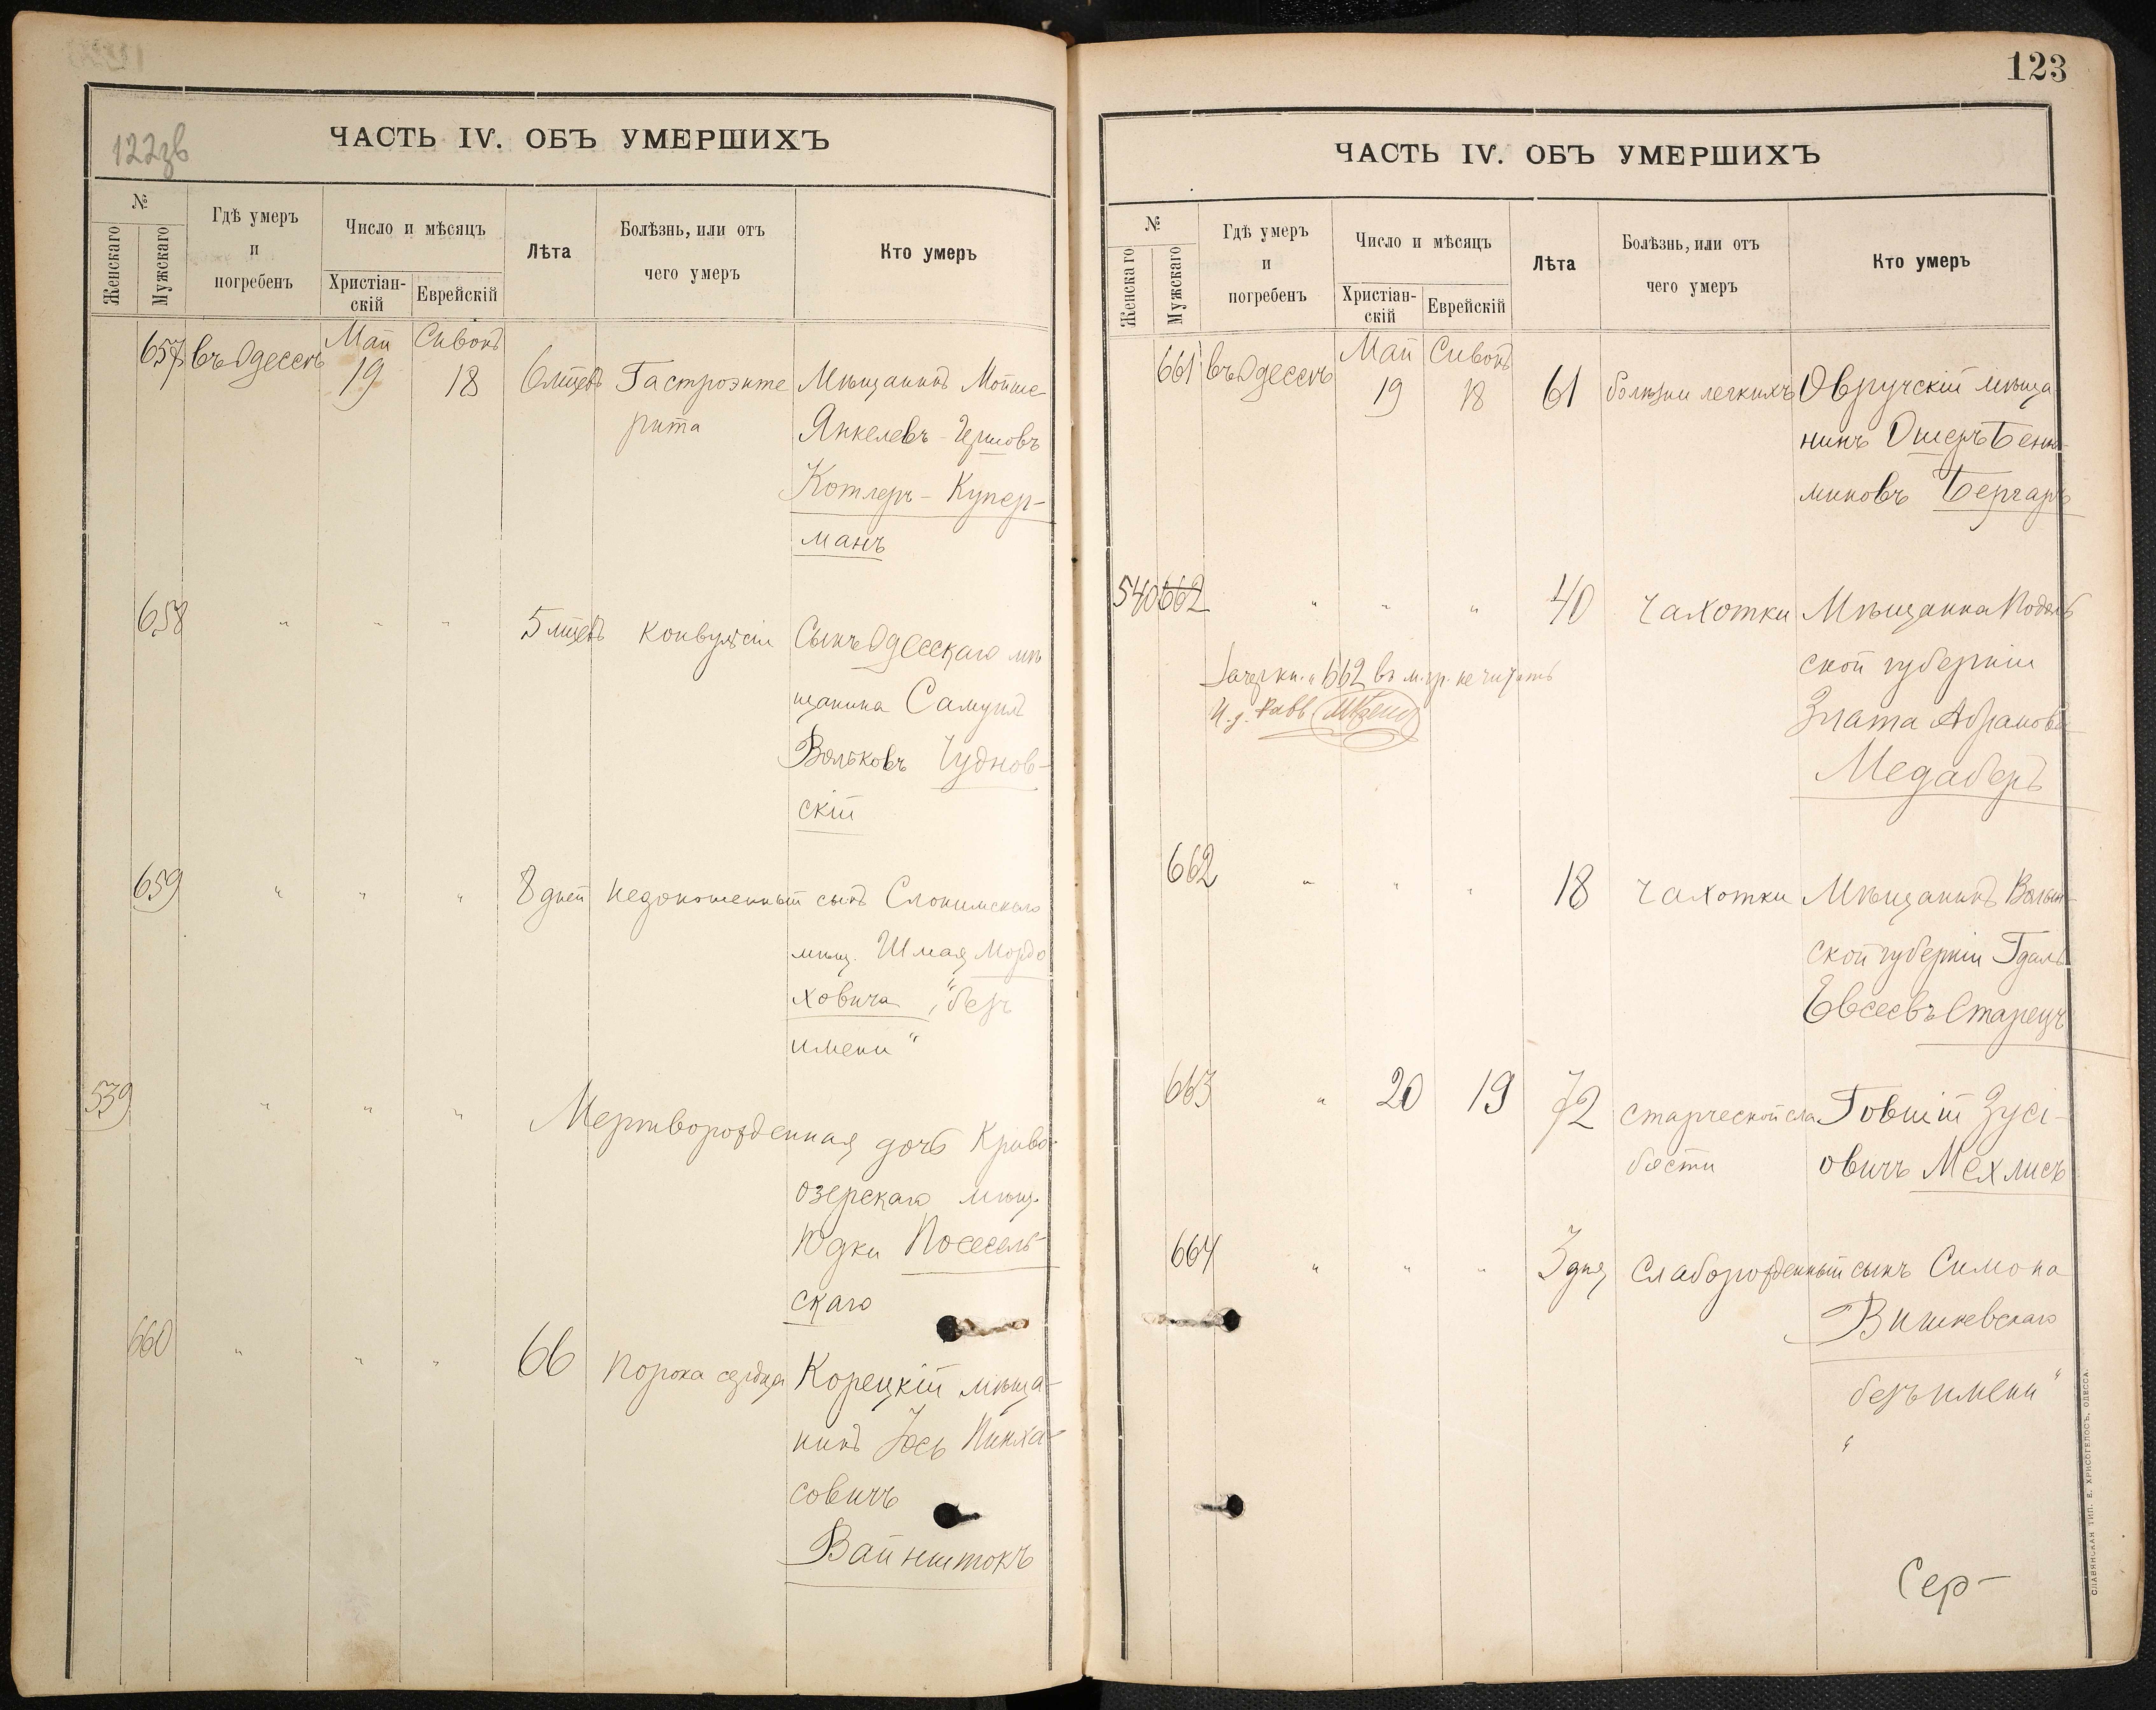 122зв
ЧАСТЬ IV. ОБЪ УМЕРШИХЪ
№
Женскаго
Мужскаго
Гдѣ умеръ
и
погребенъ
Число и мѣсяцъ
Христіан-
скій
Еврейскій
Лѣта
Болѣзнь, или отъ
чего умеръ
Кто умеръ
Май Сивонъ
657 въ Одессѣ 19 18 6 мцевъ Гастроэнте Мѣщанинъ Мойше
рита Янкелевъ-Гершовъ
Котлеръ-Купер-
манъ
658 " " " 5 мцевъ Конвульсіи Сынъ Одесскаго мѣ
щанина Самуилъ
Вольковъ Чуднов-
скій
659 " " " 8 дней недоношенный сынъ Слонимскаго
мѣщ. Шмая Мордо
ховича, "безъ
имени"
539 " " " Мертворожденная дочь Криво-
озерскаго мѣщ.
Юдки Посесель-
скаго
660 " " " 66 Порока сердца Корецкій мѣща-
нинъ Іось Пинха-
совичъ
Вайнштокъ
123
ЧАСТЬ IV. ОБЪ УМЕРШИХЪ
№
Женскаго
Мужскаго
Гдѣ умеръ
и
погребенъ
Число и мѣсяцъ
Христіан-
скій
Еврейскій
Лѣта
Болѣзнь, или отъ
чего умеръ
Кто умеръ
Май Сивонъ
661 въ Одессѣ 19 18 61 болѣзни легкихъ Овручскій мѣща
нинъ Ошеръ Бенья-
миновъ Бергаръ
540 662 " " " 40 Чахотки Мѣщанка Подоль
ской губерніи
Злата Абрамова
Медаберъ
Зачеркн. "662 въ м. гр. не читать
И. д. Равв.
662 " " " 18 Чахотки Мѣщанинъ Волын-
ской губерніи Гдаль
Евсеевъ Старецъ
663 " 20 19 72 старческой сла Говшій Зусі-
бости овичъ Мехлисъ
664 " " " 3 дня Слаборожденный сынъ Симона
Вишневскаго
безъ имени"
"
Сер-
СЛАВЯНСКАЯ ТИП. Е. ХРИСОГЕЛОСЪ, ОДЕССА.